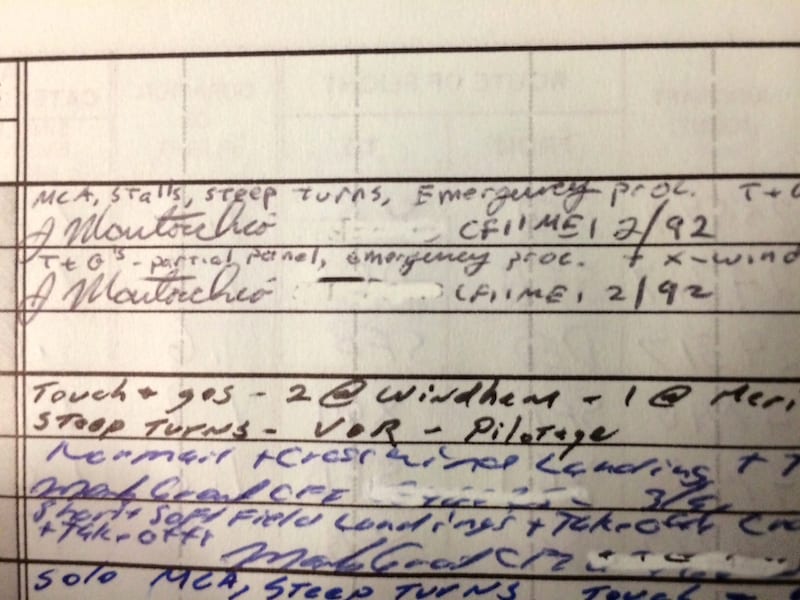 MCA, Stalls, steep turns, Emergency proc. T+G
J Montorchio CFIIMEI 2/92
T+G's - partial panel, emergency proc. + x-wind
J Montorchio CFIIMEI 2/92
Touch + gos - 2 @ Windham - 1 @ Meri
Steep Turns - VOR - Pilotage
Normal + Cross Wind Landing +
CFI 3/
Short + Soft Field Landings + Take Offs
+ Take Offs
CFI
Solo MCA, Steep Turns Touch